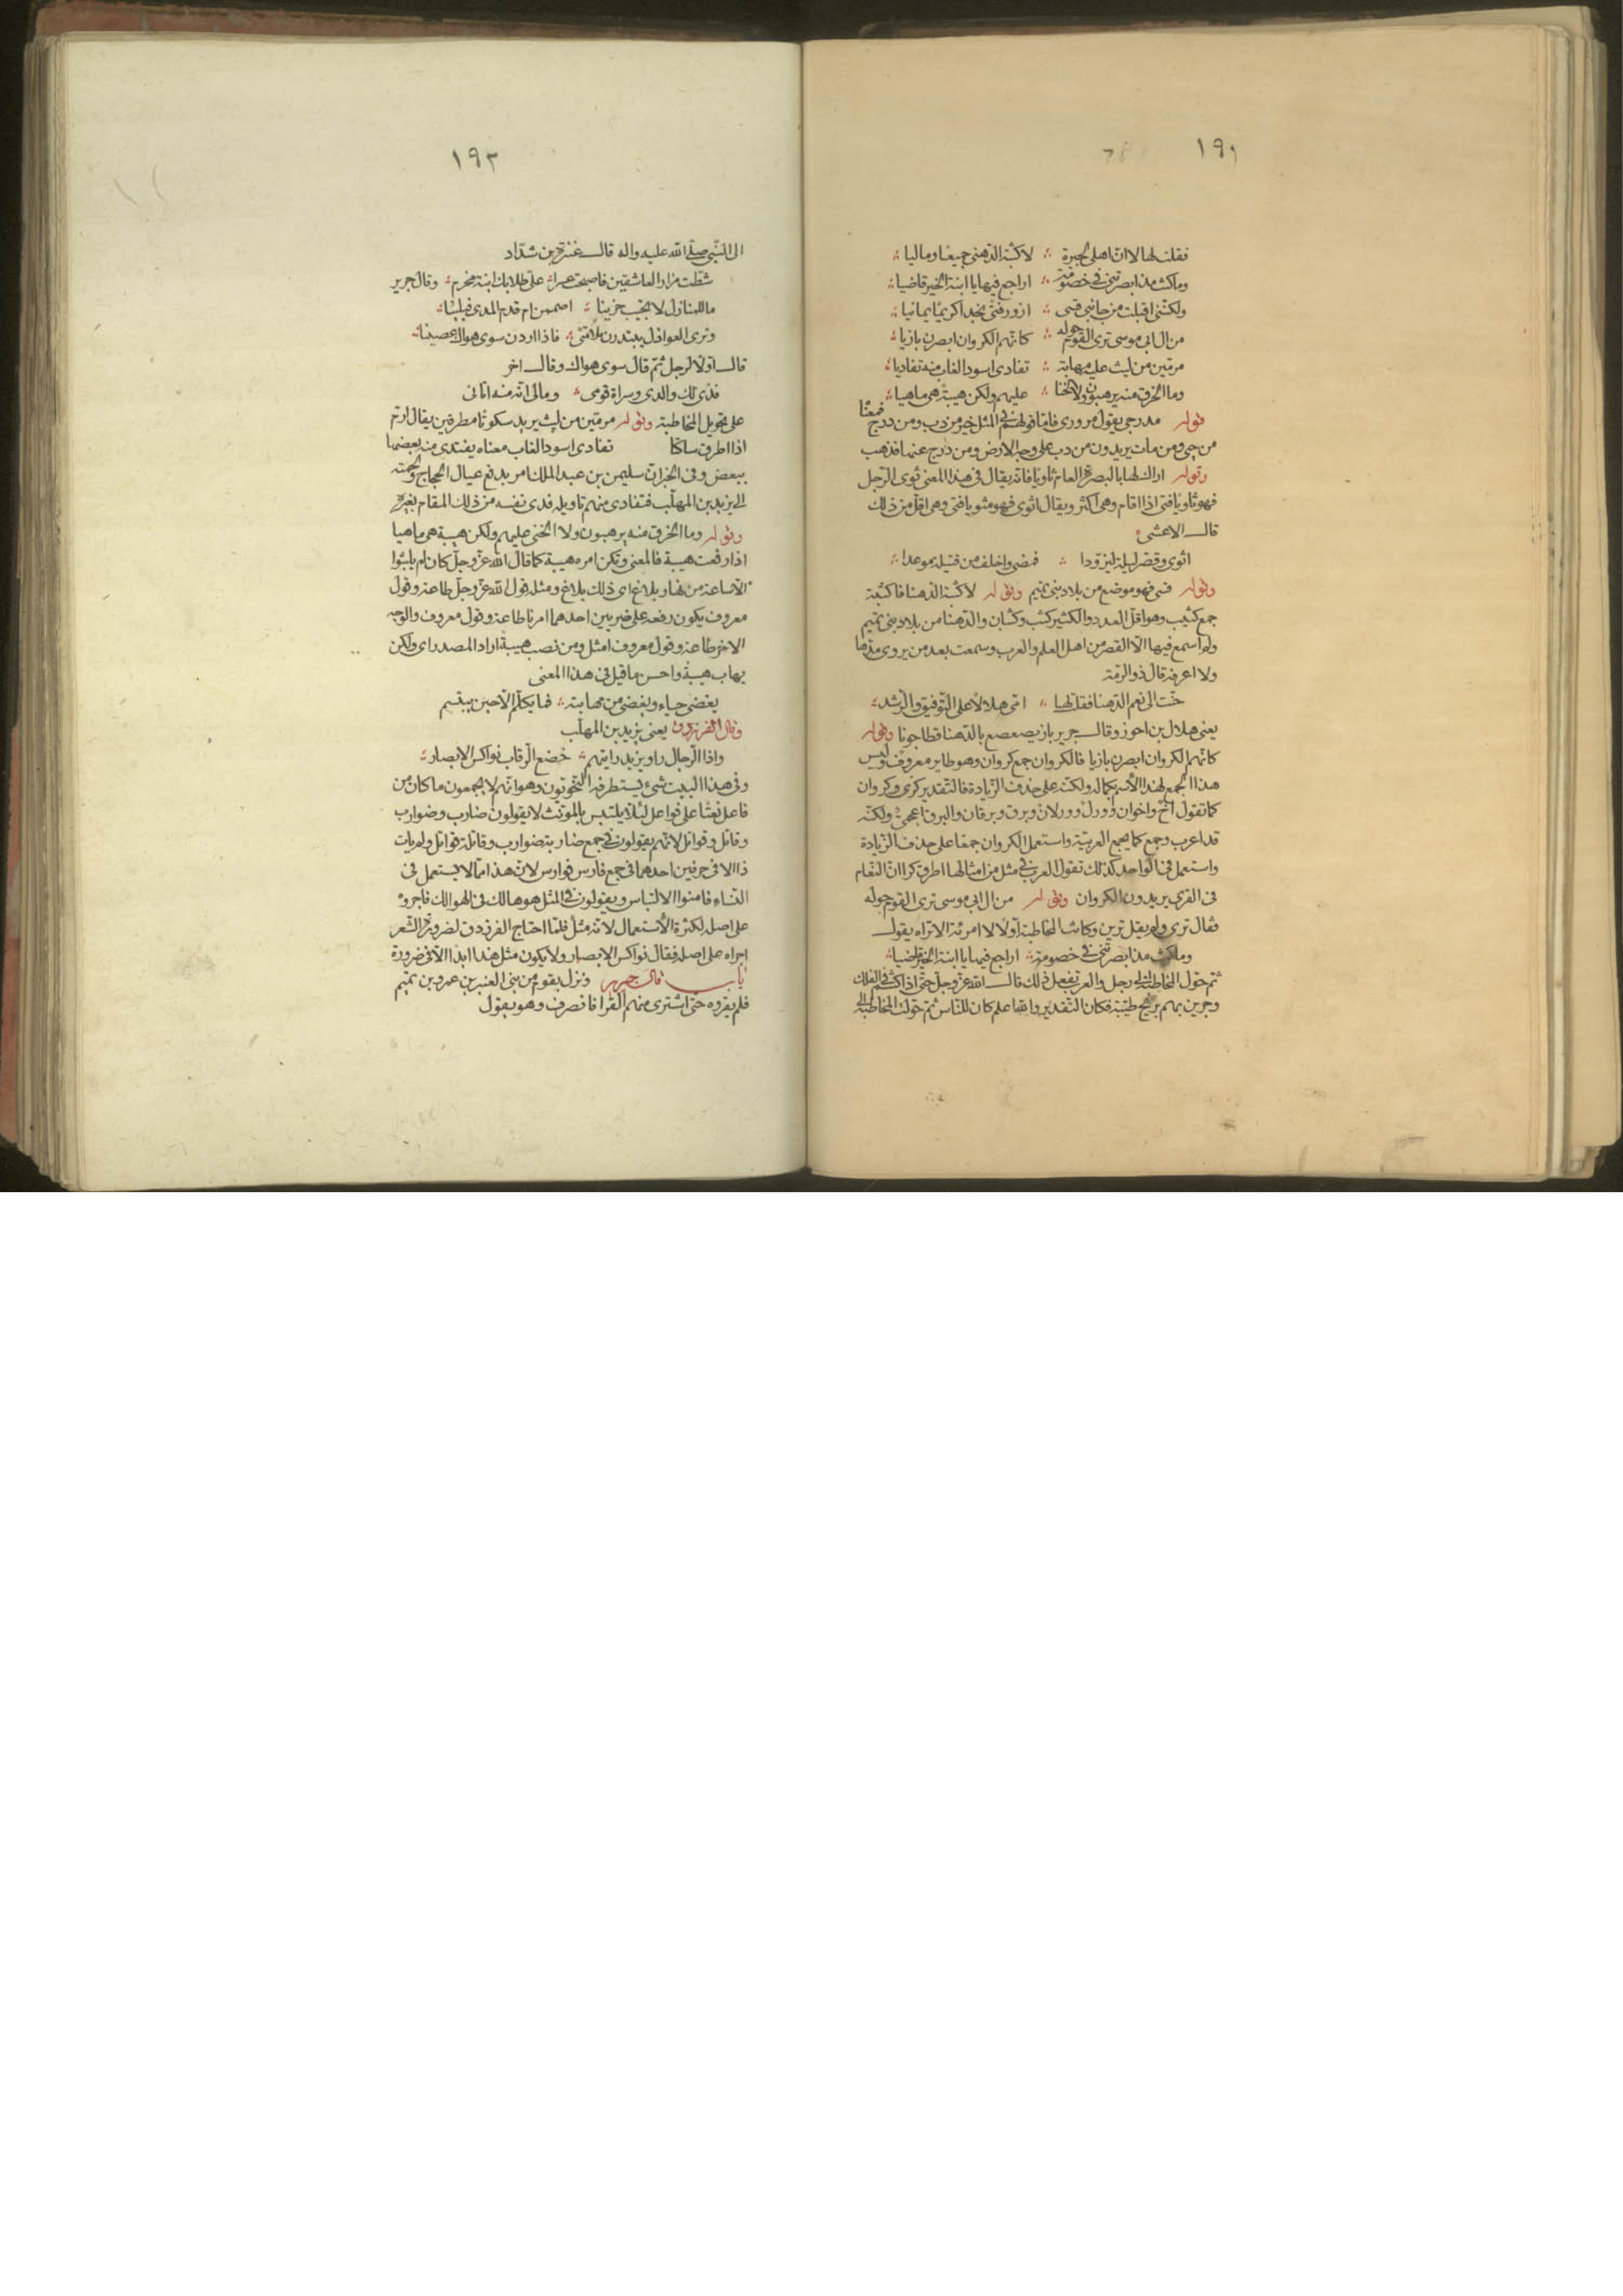 ١٩١
فقلت لها لا ان اهلى لجيرة لاكثبة الدهنى جميعا وماليا
وما كنت مذ ابصرتنى فى خصومة اراجع فيها يا ابنة الخير قاضيا
ولكننى اقبلت من جانبى قسى ازور فتى نجدا كريما يمانيا
من ال ابى موسى ترى القوم حوله كانهم الكروان ابصرن بازيا
مرمين من ليث عليه مهابة تفادى اسود الغاب منه تفاديا
وما الخرق منه يرهبون ولا الخنا عليهم ولكن هيبة هى ماهيا
قوله مدرجى يقول مرورى فاما قولهم فى المثل خير من دب ومن درج فمعناه
من حى ومن مات يريدون من دب على وجه الارض ومن درج عنها فذهب
وقوله اراك لها بالبصرة العام ثاويا فانه يقال فى هذا المعنى ثوى الرجل
فهو ثاو يا فتى اذا اقام وهى اكثر ويقال اثوى فهو مثو يا فتى وهى اقل من ذلك
قال الاعشى
اثوى وقصر ليلة ليزودا فمضى واخلف من قتيلة موعدا
وقوله قسى فهو موضع من بلاد بنى تميم وقوله لاكثبة الدهنا فاكثبة
جمع كثيب وهو اقل العدد والكثير كثب وكثبان والدهنا من بلاد بنى تميم
ولم اسمع فيها الا القصر من اهل العلم والعرب وسمعت بعد من يروى مدها
ولا اعرفه قال ذو الرمة
حنت الى نعم الدهنا فقلت لها امى هلالا على التوفيق والرشد
يعنى هلال بن احوز وقال جرير باز يصعصع بالدهنا قطا جونا وقوله
كانهم الكروان ابصرن بازيا فالكروان جمع كروان وهو طاير معروف وليس
هذا الجمع لهذا الاسم بكماله ولكنه على حذف الزيادة فالتقدير كرى وكروان
كما تقول اخ واخوان وورل وورلان وبرق وبرقان والبرق اعجمى ولكنه
قد اعرب وجمع كما يجمع العربية واستعمل الكروان جمعا على حذف الزيادة
واستعمل فى الواحد كذلك تقول العرب فى مثل من امثالها اطرق كرا ان النعام
فى القرى يريدون الكروان وقوله من ال ابى موسى ترى القوم حوله
فقال ترى ولم يقل ترين وكانت المخاطبة اولا لامرئة الا تراه يقول
وما كنت مذ ابصرتنى فى خصومة اراجع فيها يا ابنة الخير قاضيا
ثم حول المخاطبة الى رجل والعرب تفعل ذلك قال الله عز وجل حتى اذا كنتم فى الفلك
وجرين بهم بريح طيبة فكان التقدير والله اعلم كان للناس ثم حولت المخاطبة الى
١٩٢
الى النبى صلى الله عليه واله قال عنترة بن شداد
شطت مزار العاشقين فاصبحت عسرا على طلابك ابنة مخرم وقال جرير
ما للمنازل لا تجيب حزينا اصممن ام قدم المدى فبلينا
وترى العواذل يبتدرن ملامتى فاذا اردن سوى هواك عصينا
قال اولا لرجل ثم قال سوى هواك وقال اخر
فدى لك والدى وسراة قومى ومالى انه منه اتانى
على تحويل المخاطبة وقوله مرمين من ليث يريد سكوتا مطرقين يقال ارم
اذا اطرق ساكتا تفادى اسود الغاب معناه يفتدى منه بعضها
ببعض وفى الخبر ان سليمن بن عبد الملك امر بدفع عيال الحجاج ولحمته
الى يزيد بن المهلب فتفادى منهم تاويله فدى نفسه من ذلك المقام بغيره
وقوله وما الخرق منه يرهبون ولا الخنى عليهم ولكن هيبة هى ماهيا
اذا رفعت هيبة فالمعنى ولكن امره هيبة كما قال الله عز وجل كان لم يلبثوا
الا ساعة من نهار بلاغ اى ذلك بلاغ ومثله قول الله عز وجل طاعة وقول
معروف يكون رفعه على ضربين احدهما امرنا طاعة وقول معروف والوجه
الاخر طاعة وقول معروف امثل ومن نصب هيبة اراد المصدر اى ولكن
يهاب هيبة واحسن ما قيل فى هذا المعنى
يغضى حياء ويغضى من مهابته فما يكلم الا حين يبتسم
وقال الفرزدق يعنى يزيد بن المهلب
واذا الرجال راو يزيد رايتهم خضع الرقاب نواكس الابصار
وفى هذا البيت شئ يستطرفه النحويون وهو انهم لا يجمعون ما كان من
فاعل نعتا على فواعل لئلا يلتبس بالمونث لا يقولون ضارب وضوارب
وقاتل وقواتل لانهم يقولون فى جمع ضاربة ضوارب وقاتلة قواتل ولم يات
ذا الا فى حرفين احدهما فى جمع فارس فوارس لان هذا مما لا يستعمل فى
النساء فامنوا الالتباس ويقولون فى المثل هو هالك فى الهوالك فاجروه
على اصله لكثرة الاستعمال لانه مثل فلما احتاج الفرزدق لضرورة الشعر
اجراه على اصله فقال نواكس الابصار ولا يكون مثل هذا ابدا الا فى ضرورة
باب قال جرير ونزل بقوم من بنى العنبر بن عمرو بن تميم
فلم يقروه حتى اشترى منهم القرا فانصرف وهو يقول